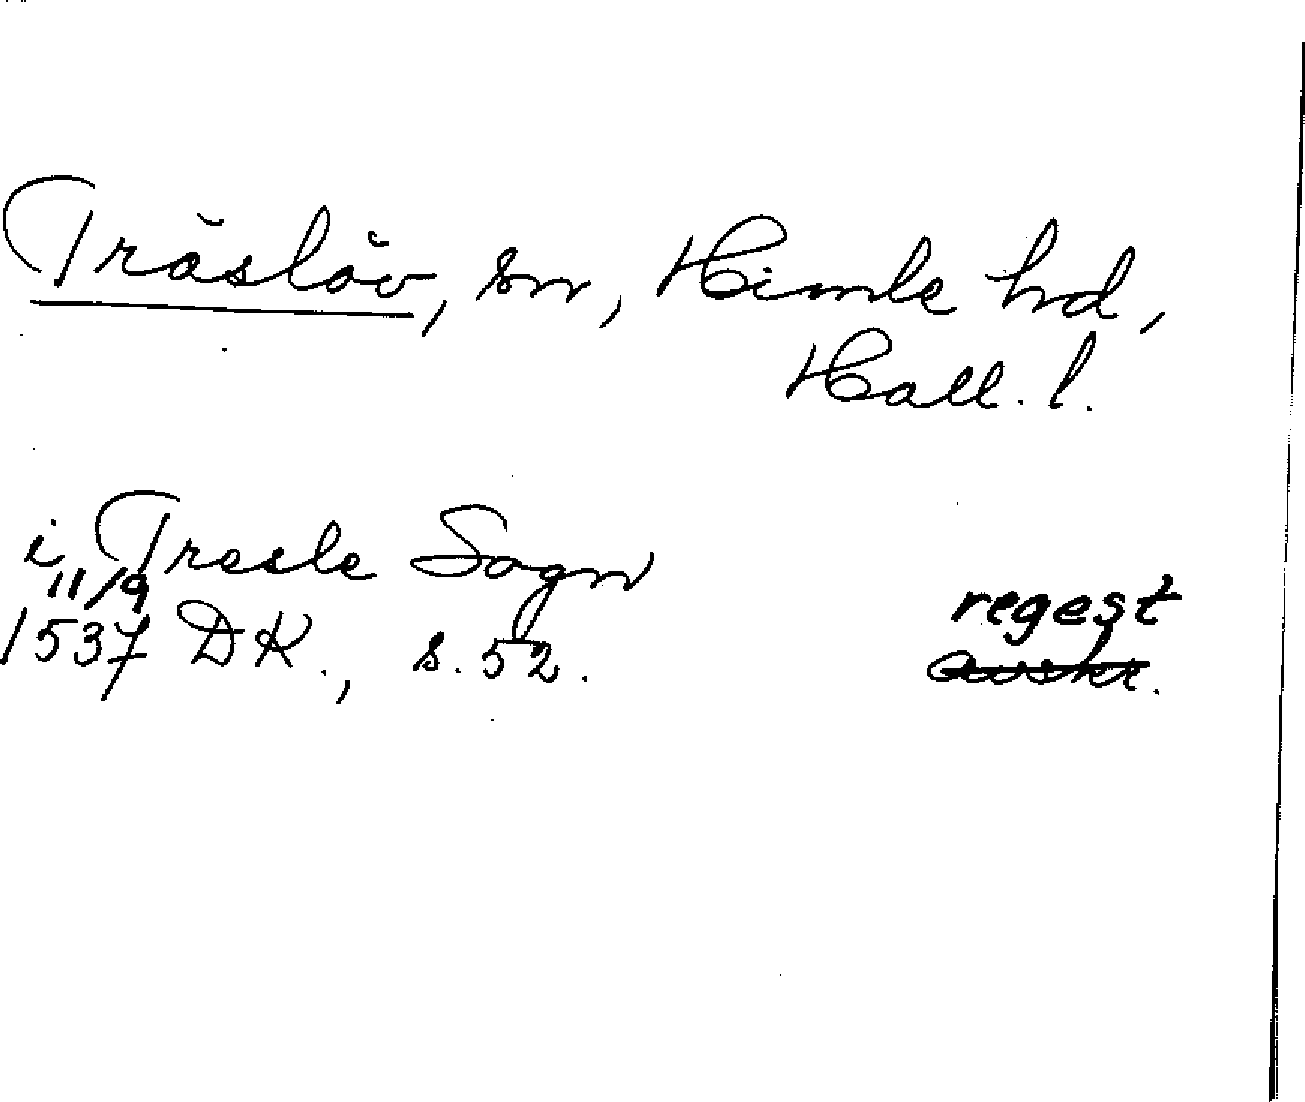 Träslöv, sn, Himle hd,
Hall. l.
i Tresle Sogn
11/9
1537 DK., s. 52.
regest